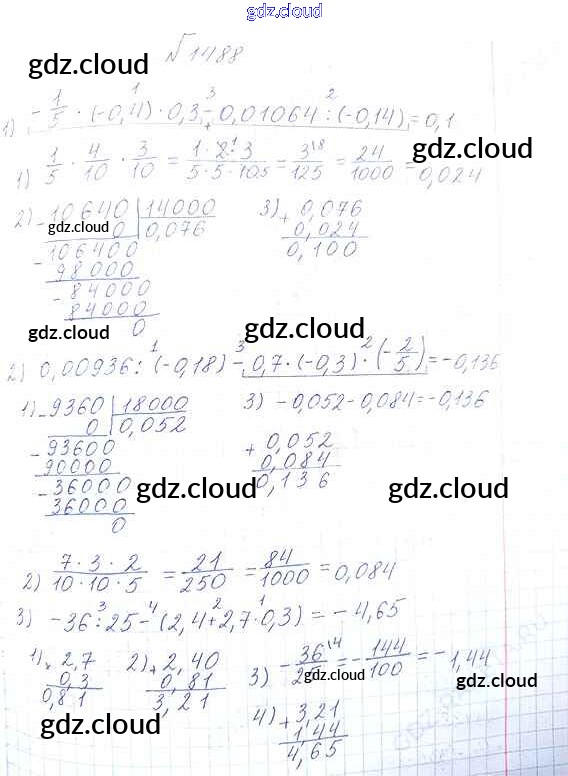 gdz.cloud
№ 1488
gdz.cloud gdz.cloud
1) -1/5 · (-0,4) · 0,3 - 0,01064 : (-0,14) = 0,1
gdz.cloud
1) 1/5 · 4/10 · 3/10 = 1·2·3/5·5·10 = 3/125 = 24/1000 = 0,024
2) 10640 | 14000 3) + 0,076
0 | 0,076 0,024
gdz.cloud 0,100
- 106400
98000
- 84000
84000
0
gdz.cloud gdz.cloud
2) 0,00936 : (-0,18) - 0,7 · (-0,3) · (-2/5) = -0,136
1) - 9360 | 18000 3) -0,052 - 0,084 = -0,136
0 | 0,052
- 93600 + 0,052
90000 0,084
- 36000 0,136
36000
0
gdz.cloud gdz.cloud
2) 7·3·2/10·10·5 = 21/250 = 84/1000 = 0,084
3) -36 : 25 - (2,4 + 2,7 · 0,3) = -4,65
1) × 2,7 2) + 2,40 3) -36/25 = -144/100 = -1,44
0,3 0,81
0,81 3,21
gdz.cloud gdz.cloud gdz.cloud
4) + 3,21
1,44
4,65
gdz.cloud gdz.cloud